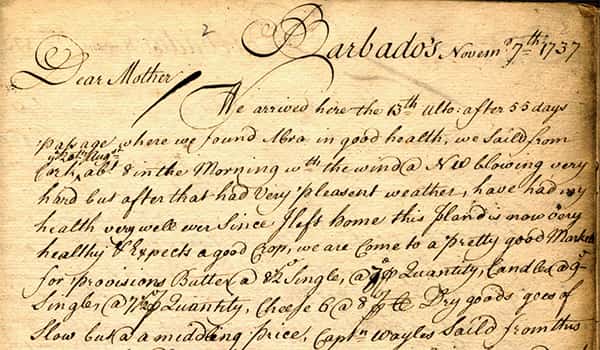 2
Barbado's Novemr 7th 1737
Dear Mother
We arrived here the 13th Ulto: after 55 days
passage where we found Abra in good health, we Saild from
ye 20th Augst
Cork, abt 8 in the Morning wth the wind @ NW blowing very
hard but after that had Very Pleasent weather, have had my
health very well ever Since I left home this Island is now Very
healthy & Expects a good Crop, we are Come to a pretty good Market
for Provisions Butter @ Single, @ Quantity, Candles @ 9
Single @ Quantity, Cheese 6 @ 8 Dry goods goes of
Slow but @ a middling price, Captn Wayles Saild from this